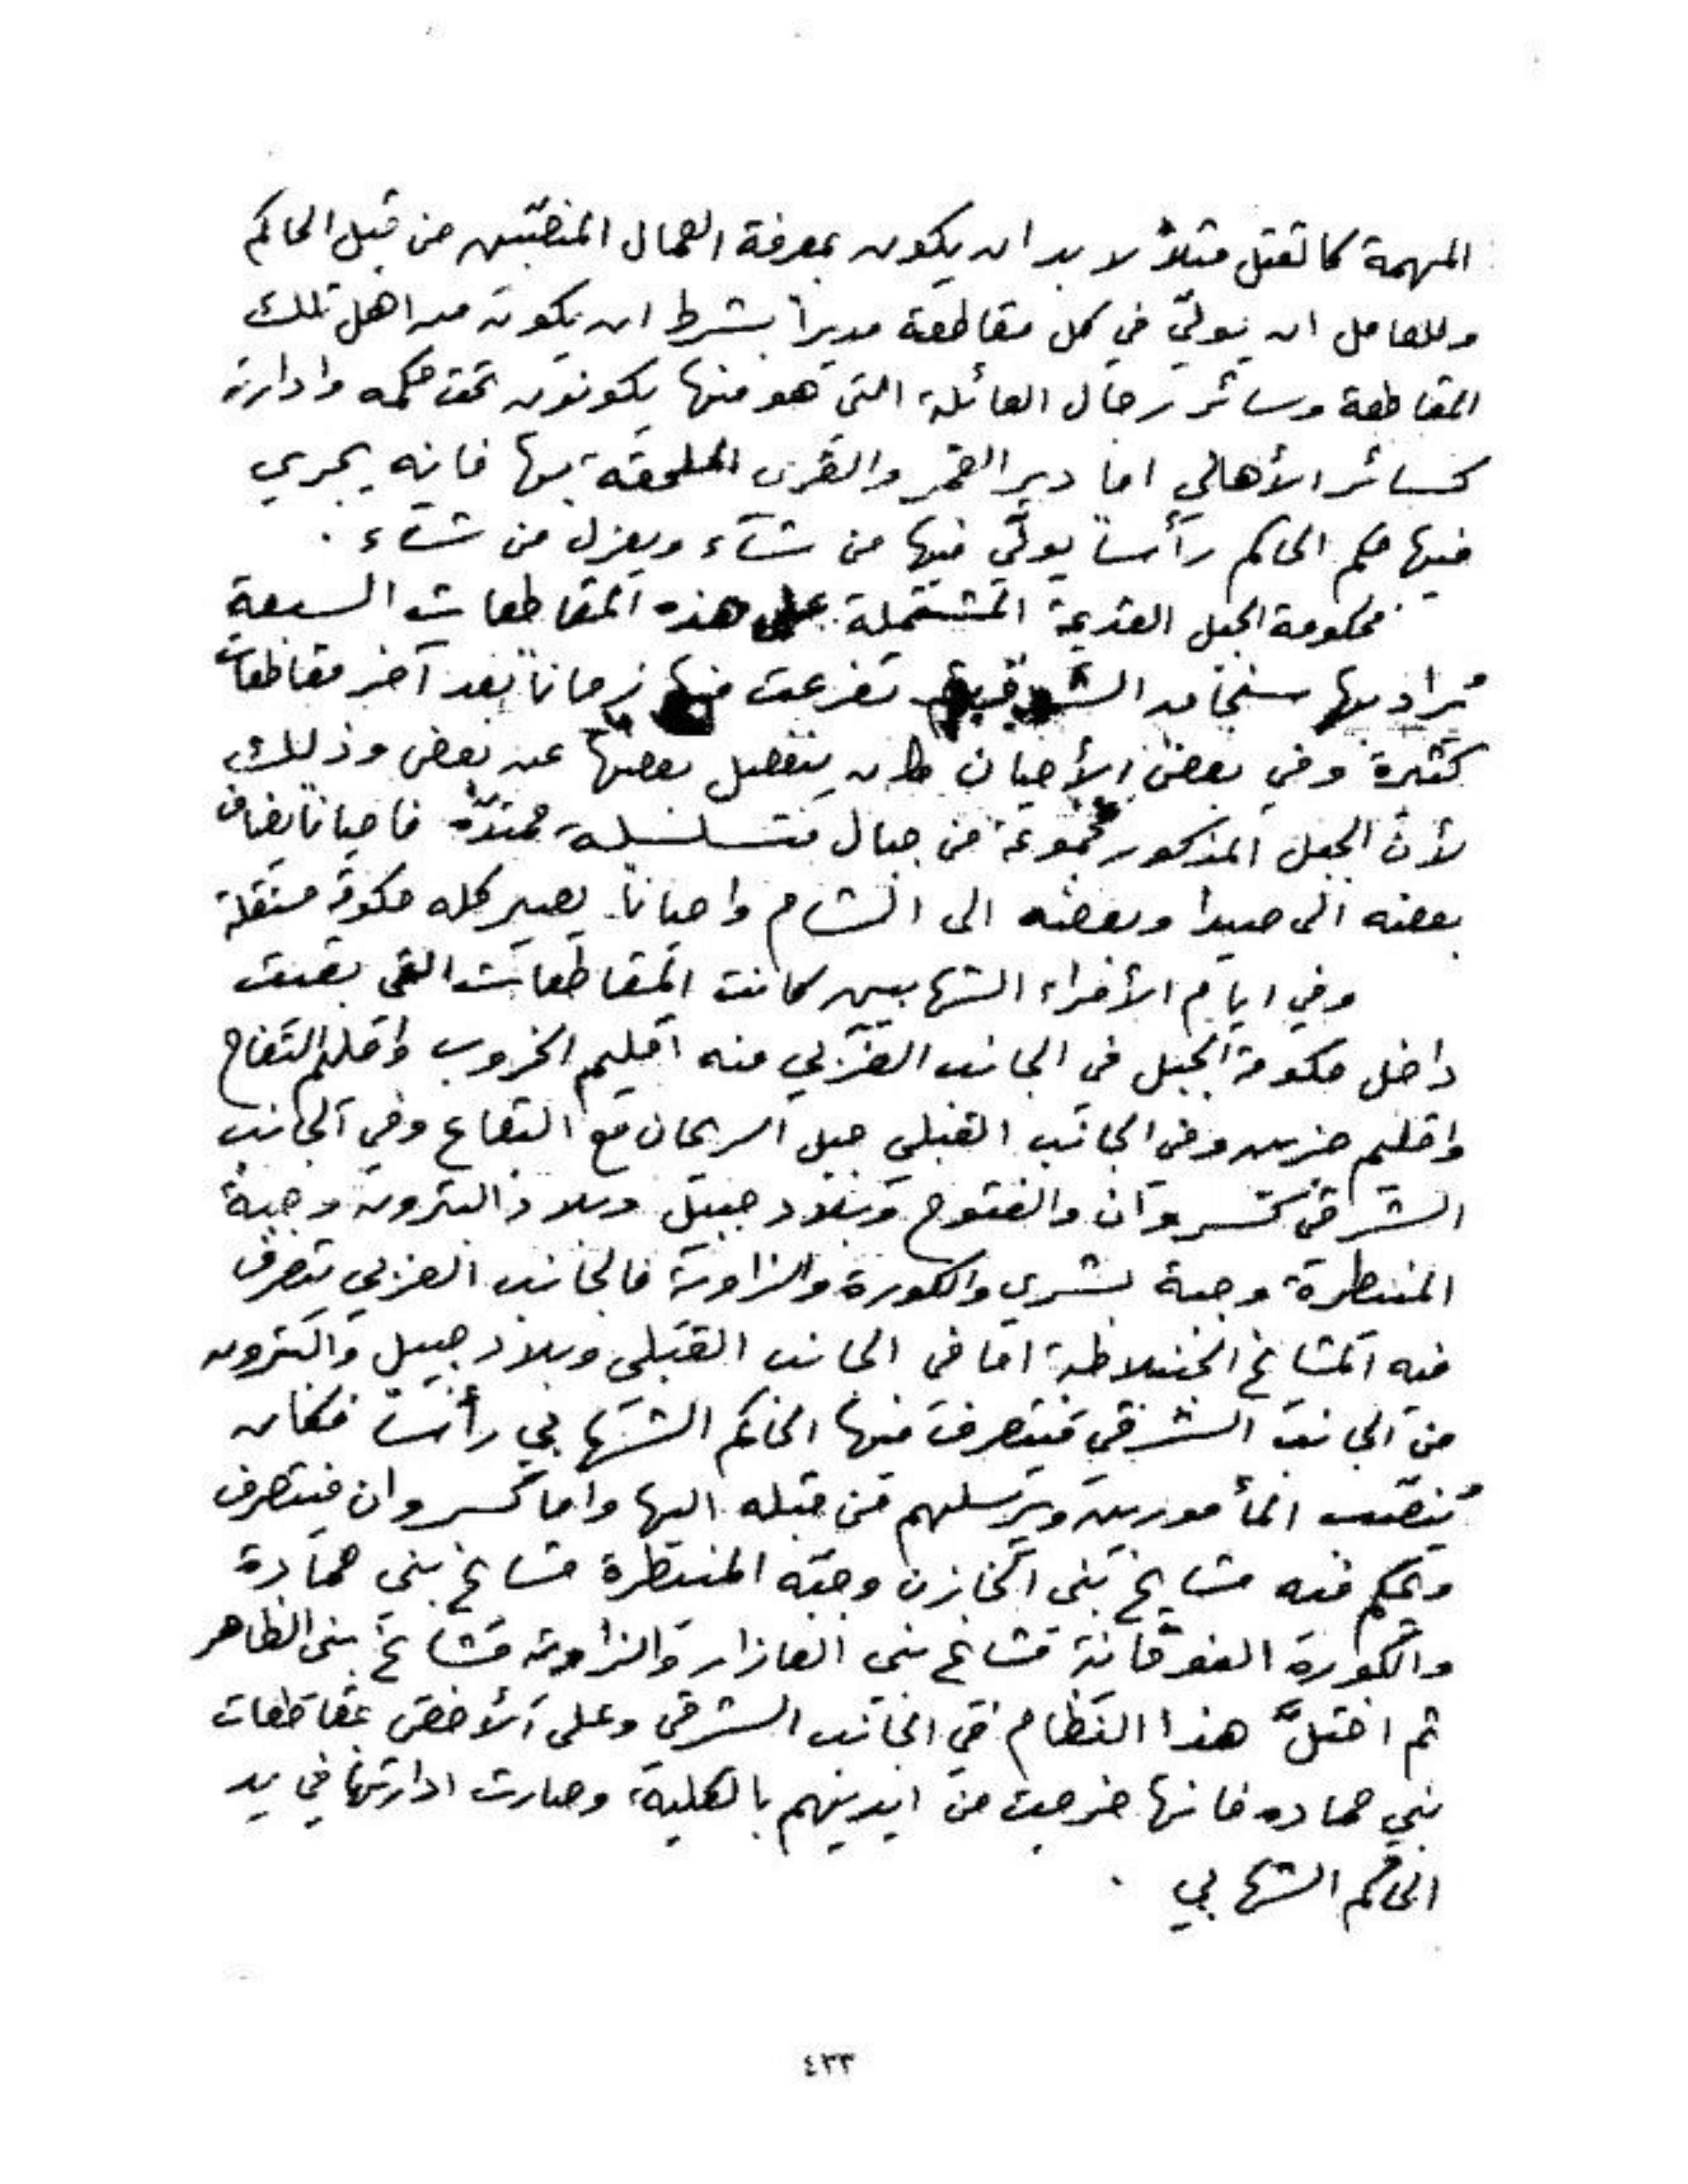 المهمة كالقتل مثلاً لا بد ان يكون بمعرفة العمال المنصّبين من قبل الحاكم
وللعامل ان يولّي في كل مقاطعة مديراً بشرط ان يكون من اهل تلك
المقاطعة وسائر رجال العائلة التي هو منها يكونون تحت حكمه وادارته
كسائر الأهالي اما دير القمر والقرى الملحقة بها فانه يجري
فيها حكم الحاكم رأساً يولّي فيها من شآء ويعزل من شآء .
فحكومة الجبل القديمة المشتملة على هذه المقاطعات السبعة
يُراد بها سنجان الشوف تفرعت منها زماناً بعد آخر مقاطعات
كثيرة وفي بعض الأحيان كان ينفصل بعضها عن بعض وذلك
لأن الجبل المذكور مجموعة من جبال متسلسلة ممتدّة فاحياناً يضاف
بعضه الى صيدا وبعضه الى الشام واحياناً يصير كله حكومة مستقلة
وفي ايام الأمراء الشهابيين كانت المقاطعات التي بقيت
داخل حكومة الجبل في الجانب الغربي منه اقليم الخروب واقليم التفاح
واقليم جزين وفي الجانب القبلي جبل الريحان مع البقاع وفي الجانب
الشرقي كسروان والفتوح وبلاد جبيل وبلاد البترون وجبة
المنيطرة وجبة بشري والكورة والزاوية فالجانب الغربي تصرف
فيه المشايخ الجنبلاطية اما في الجانب القبلي وبلاد جبيل والبترون
من الجانب الشرقي فيتصرف فيها الحاكم الشهابي رأساً فكان
يُنصّب المأمورين ويرسلهم من قبله اليها واما كسروان فيتصرف
ويحكم فيه مشايخ بني الخازن وجبة المنيطرة مشايخ بني حمادة
والكورة الفوقانية مشايخ بني العازار والزاوية مشايخ بني الظاهر
ثم اختلَّ هذا النظام في الجانب الشرقي وعلى الأخص بمقاطعات
بني حماده فانها خرجت من ايديهم بالكلية وصارت ادارتها في يد
الحاكم الشهابي .
٤٣٣